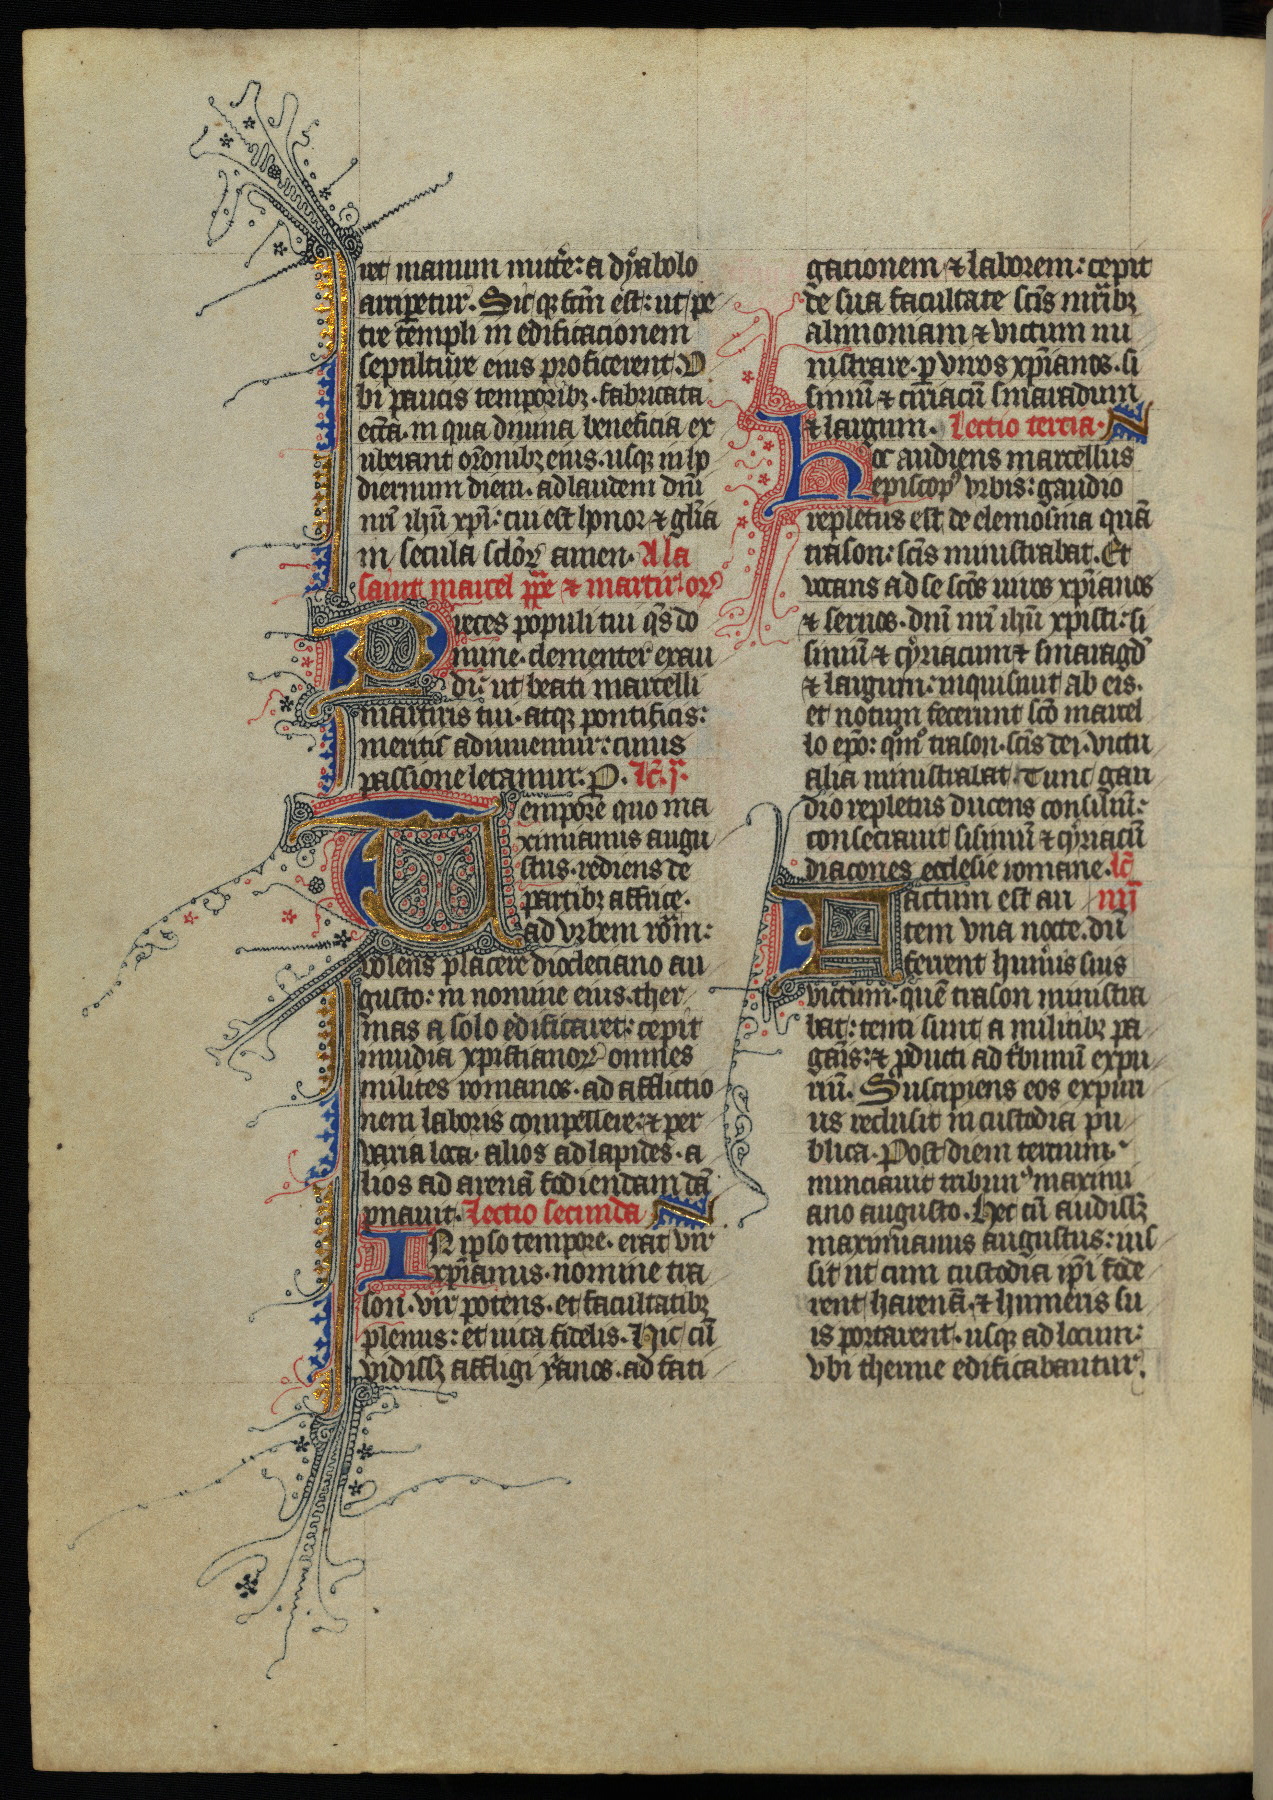 ret manum mittẽ: a dyabolo
arripetur. Sic qͥ fctm̄ est: ut pe
tre templi in edificacionem
sepulture eius proficerent. V
bi paucis temporibꝫ. fabricata
eccꝉa. in qua diuina beneficia ex
uberant or̄onibꝫ eius. usqꝫ in ho
diernum diem. ad laudem dn̄i
nr̄i ih̄u xp̄i: cui est honor ⁊ glīa
in secula sclōꝝ amen. A la
saint marcel pp̄e ⁊ martir. or̄
Preces populi tui q̄s do
mine. clementer exau
di: ut beati marcelli
martiris tui. atqꝫ pontificis:
meritis adiuuemur: cuius
passione letamur. P. Lc̄. j.ᵃ
Tempore quo ma
ximianus augu
stus. rediens de
partibꝫ affrice.
ad vrbem rom̄:
volens placere diocleciano au
gusto: in nomine eius. ther
mas a solo edificaret: cepit
inuidia xpistianoꝝ omnes
milites romanos. ad afflictio
nem laboris compellere: ⁊ per
varia loca. alios ad lapides. a
lios ad arenā fodiendam dā
pnauit. Lectio secunda
IN ipso tempore. erat vir
xp̄ianus. nomine tra
son. vir potens. et facultatibꝫ
plenus: et uita fidelis. Hic cū
vidissꝫ affligi xᵖanos. ad fati
gationem ⁊ laborem: cepit
de sua facultate scīs mr̄ibꝫ
alimoniam ⁊ victum mi
nistrare. ꝑ viros xp̄ianos. si
sinnū ⁊ ciriacū smaradum
⁊ largum. Lectio tercia.
Hoc audiens marcellus
episcopꝰ vrbis: gaudio
repletus est de elemosina quā
trason: scīs ministrabat. Et
vocans ad se scōs uiros xp̄ianos
⁊ seruos. dn̄i nr̄i ih̄u xpisti: si
sinnū ⁊ cyriacum ⁊ smaragdᵘ
⁊ largum: inquisiuit ab eis.
et notum fecerunt scō marcel
lo ep̄o: qͦmͦ trason. scīs dei. victu
alia ministrabat. Tunc gau
dio repletus ducens consiliū:
consecrauit sisinnū ⁊ cyriacū
diacones ecclesie romane. Lc̄
Factum est au iiij
tem vna nocte. dū
ferrent humͥis suis
victum. quē trason ministra
bat: tenti sunt a militibꝫ pa
ganis: ⁊ ꝓducti ad tͥbunū expu
riū. Suscipiens eos expuri
us reclusit in custodia pu
blica. Post diem tertium.
nunciauit tribunꝰ maximi
ano augusto. Hec cū audissꝫ
maximianus augustus: ius
sit ut cum custodia ip̄i fode
rent harenā. ⁊ humeris su
is portarent. usqꝫ ad locum:
vbi therme edificabantur.